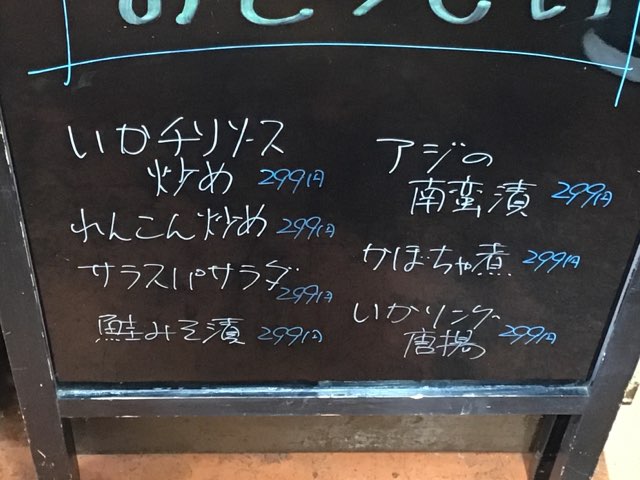 いかチリソース
炒め 299円
れんこん炒め 299円
サラスパサラダ
299円
鮭みそ漬 299円
アジの
南蛮漬 299円
かぼちゃ煮 299円
いかリング
唐揚 299円